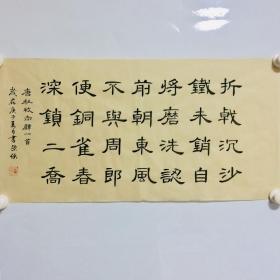 折戟沉沙
鐵未銷自
將磨洗認
前朝東風
不與周郎
便銅雀春
深鎖二喬
唐杜牧赤壁一首
歲在庚子